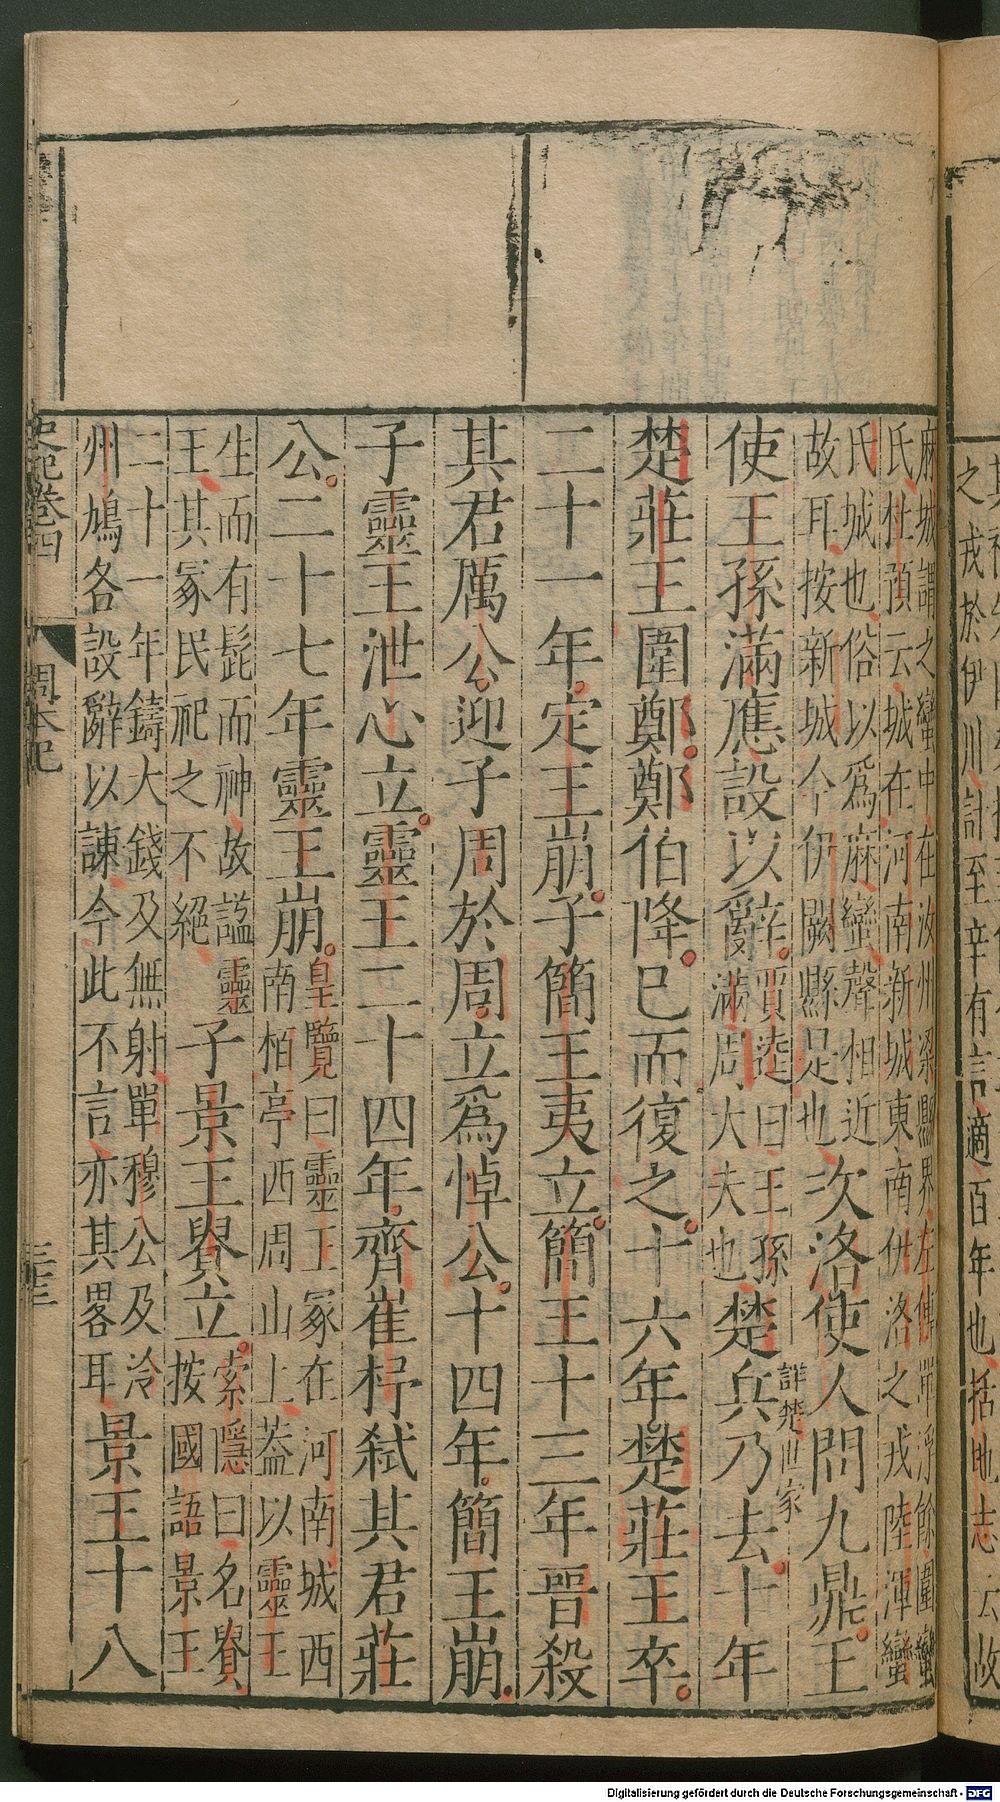 之戎於伊川計至辛有言適百年也括地志云故
麻城謂之蠻中在汝州梁縣界左傳單浮餘圍蠻
氏杜預云城在河南新城東南伊洛之戎陸渾蠻
氏城也俗以爲麻蠻聲相近
故耳按新城今伊闕縣是也
次洛使人問九鼎王
使王孫滿應設以辭
賈逵曰王孫
滿周大夫也
楚兵乃去
詳楚世家
十年
楚莊王圍鄭鄭伯降已而復之十六年楚莊王卒
二十一年定王崩子簡王夷立簡王十三年晉殺
其君厲公迎子周於周立爲悼公十四年簡王崩
子靈王泄心立靈王二十四年齊崔杼弒其君莊
公二十七年靈王崩
皇覽曰靈王冢在河南城西
南栢亭西周山上葢以靈王
生而有髭而神故謚靈
王其冢民祀之不絕
子景王貴立
索隱曰名貴
按國語景王
二十一年鑄大錢及無射單穆公及泠
州鳩各設辭以諫今此不言亦其畧耳
景王十八
史記卷四
周本紀
Digitalisierung gefördert durch die Deutsche Forschungsgemeinschaft - DFG